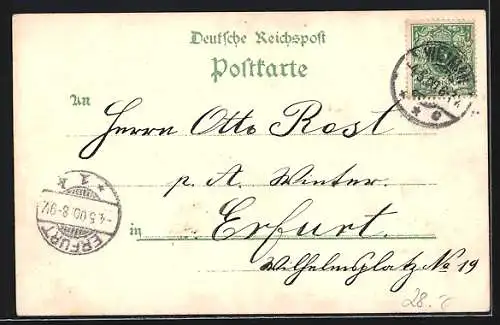 Deutsche Reichspost
Postkarte
An
Herrn Otto Rost
p. A. Winter.
in Erfurt.
Wilhelmsplatz No 19
ERFURT
* 1 k
4.5.00.8-9V.
28.-